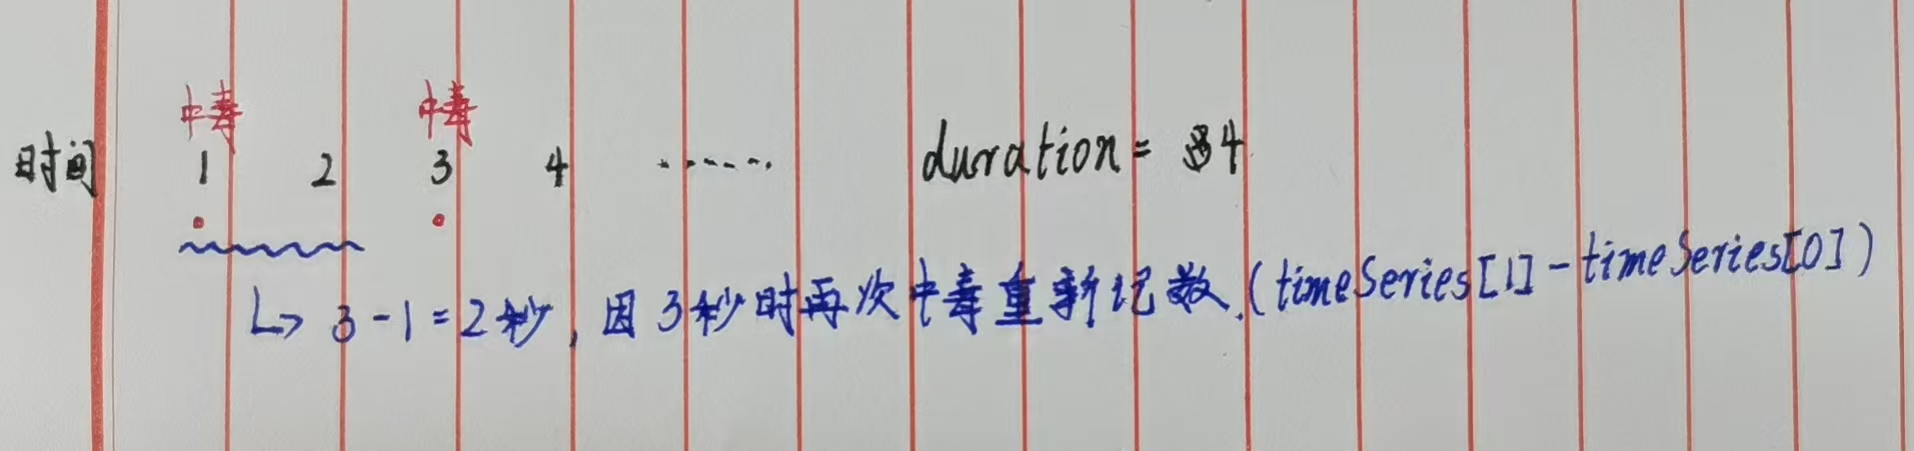 中毒 中毒
时间 1 2 3 4 ······ duration = 4
↳ 3-1=2秒,因3秒时再次中毒重新记数.(timeSeries[1]-timeSeries[0])